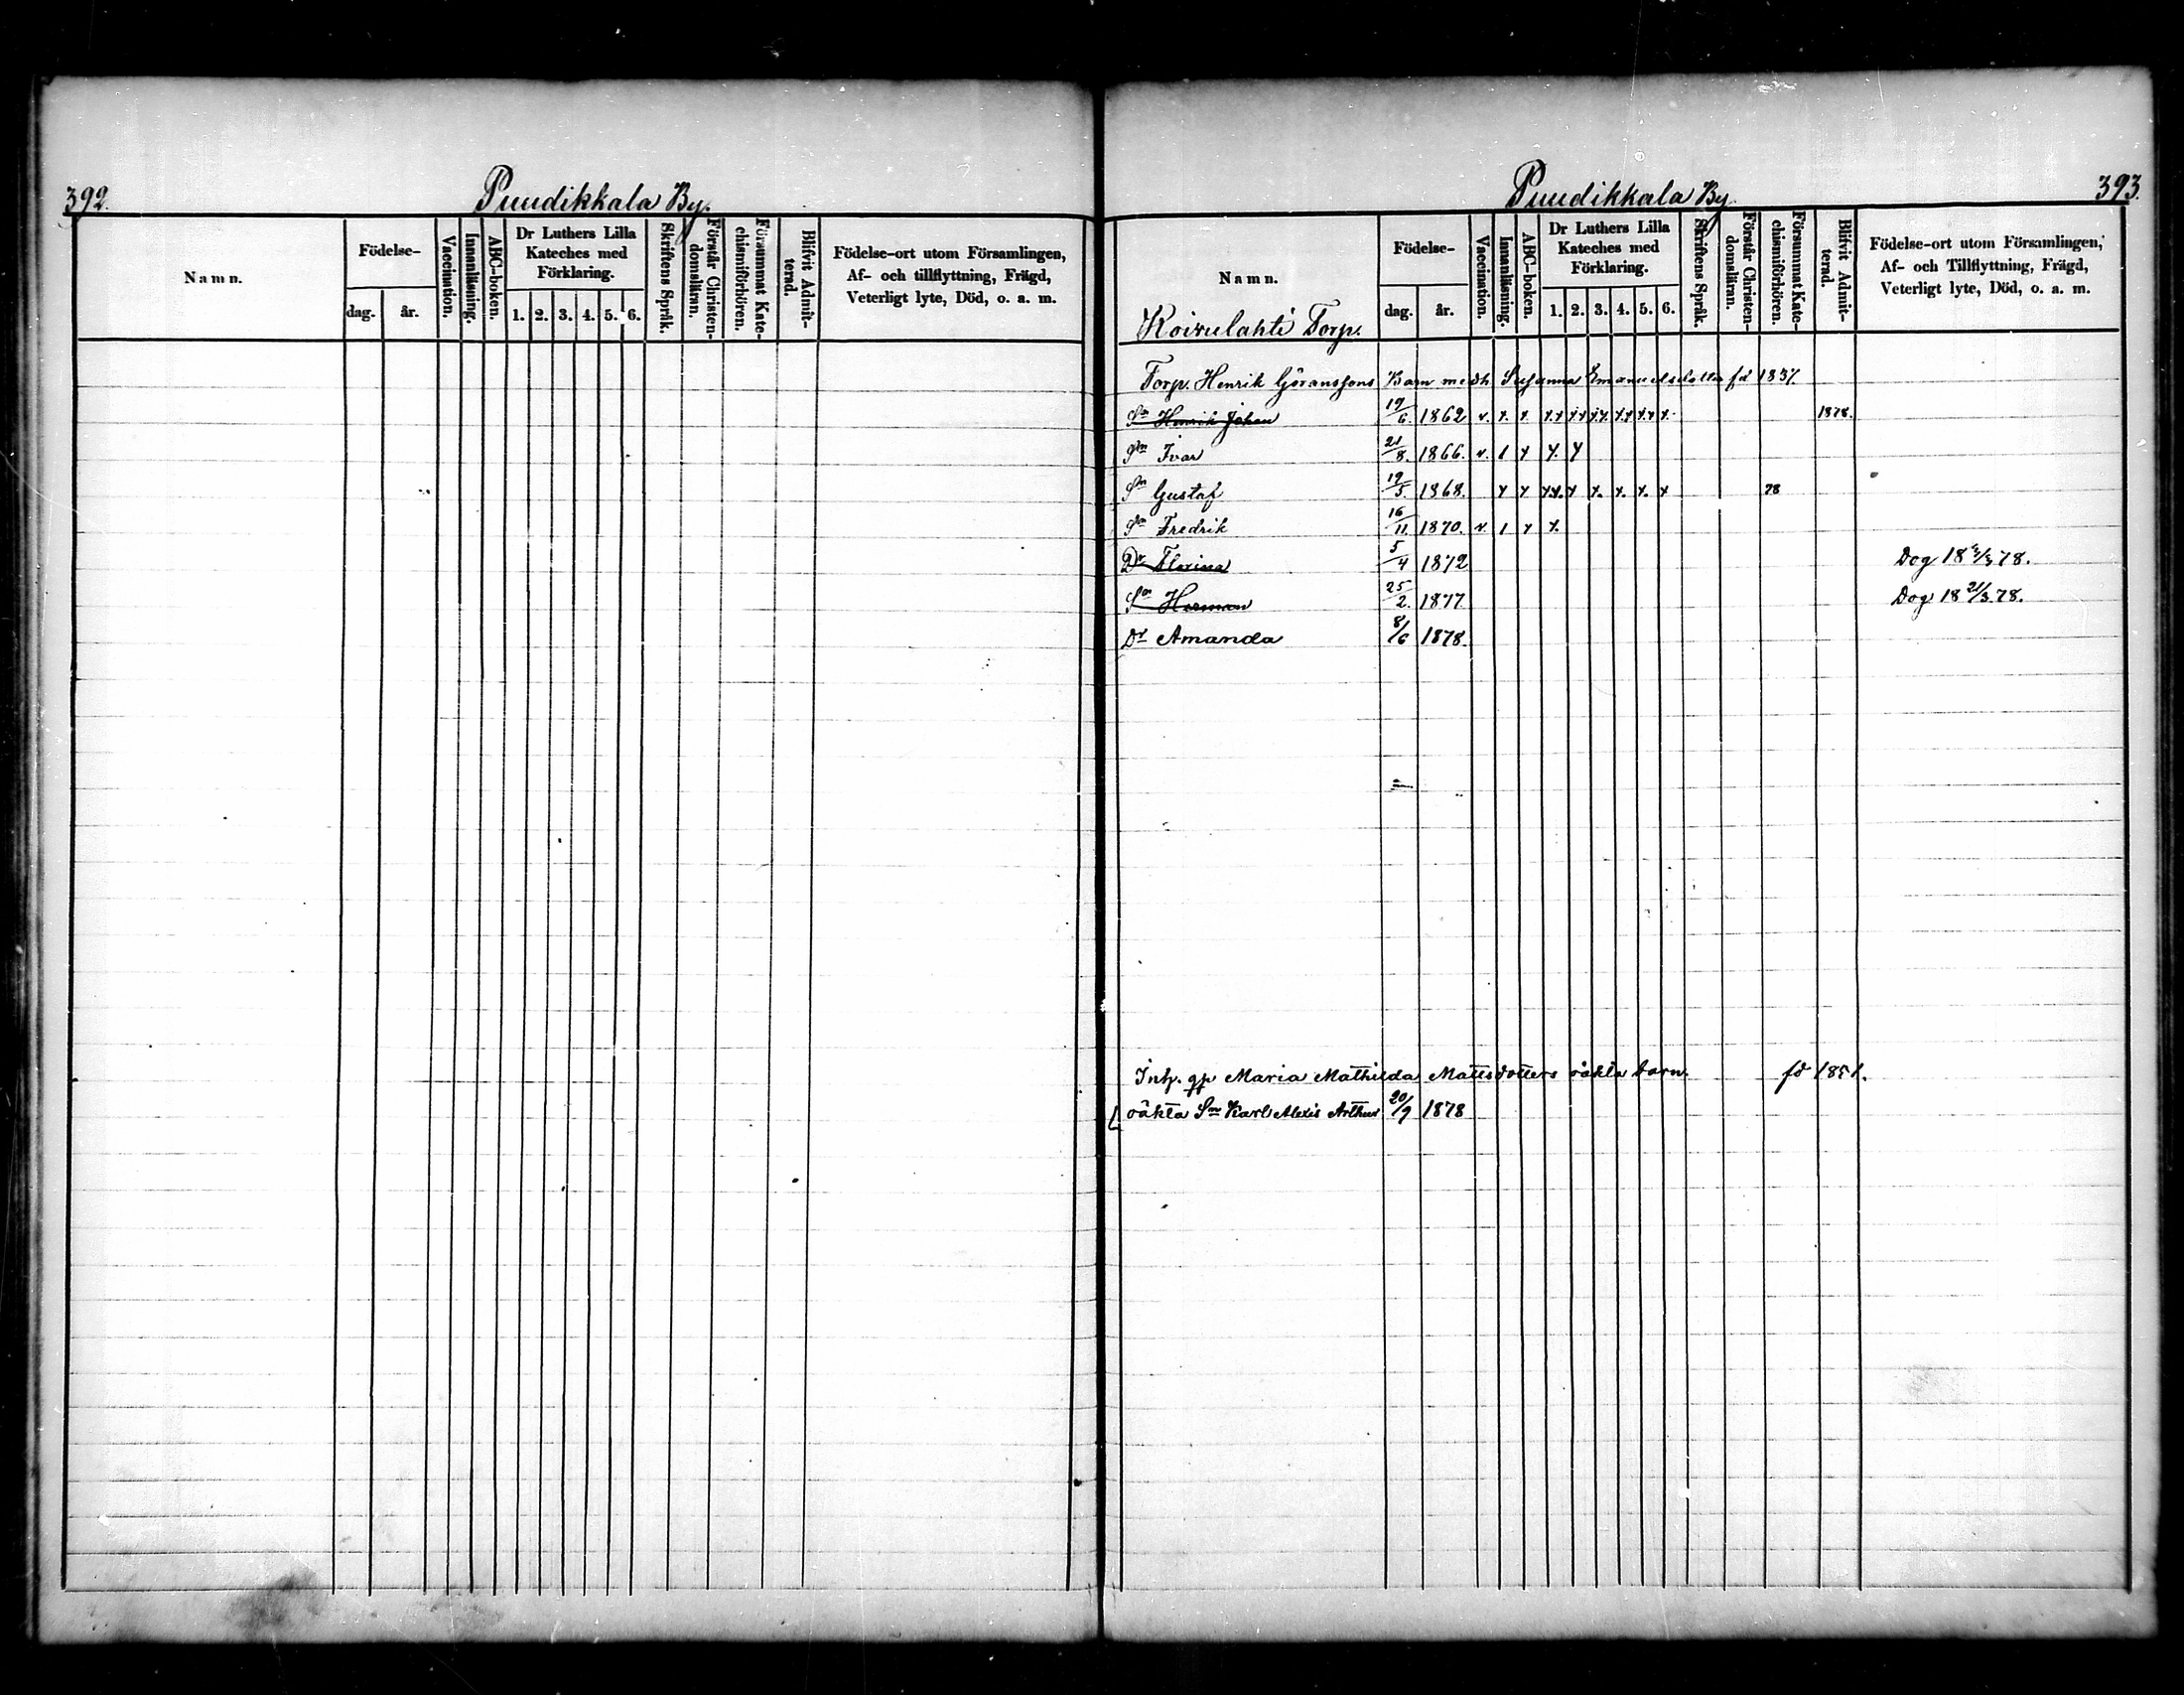 392.
Puudikkala By.
Namn.
Födelse-
dag. år.
Vaccination.
Innanläsning.
ABC-boken.
Dr Luthers Lilla Kateches med Förklaring.
1. 2. 3. 4. 5. 6.
Skriftens Språk.
Förstår Christendomsläran.
Försummat Katechismiförhören.
Blifvit Admitterad.
Födelse-ort utom Församlingen,
Af- och tillflyttning, Frägd,
Veterligt lyte, Död, o. a. m.
Puudikkala By.
393.
Namn.
Födelse-
dag. år.
Vaccination.
Innanläsning.
ABC-boken.
Dr Luthers Lilla
Kateches med
Förklaring.
1. 2. 3. 4. 5. 6.
Skriftens Språk.
Förstår Christen-
domsläran.
Försummat Kate-
chismiförhören.
Blifvit Admit-
terad.
Födelse-ort utom Församlingen,
Af- och Tillflyttning, Frägd,
Veterligt lyte, Död, o. a. m.
Koivulahti Torp.
Torp. Henrik Göranssons Barn med h. Susanna Emanuelsdotter fd 1837.
Sn Henrik Johan 19/6. 1862 v. x. x x x x x x x x x x x x x. 1878.
Sn Ivar 21/8. 1866. v. 1 x x. x
Sn Gustaf 19/5 1868. x x x x. x x. x. x. x 78
Sn Fredrik 16/11. 1870. v. 1 x x.
Dr Florina 5/4 1872 Dog 18 /3 78.
Sn Herman 25/2. 1877 Dog 18 21/3. 78.
Dr Amanda 8/6 1878.
Inh. qp Maria Mathilda Mattsdotters oäkta barn. fd 1851.
oäkta Sn Karl Alexis Arthur 20/9 1878